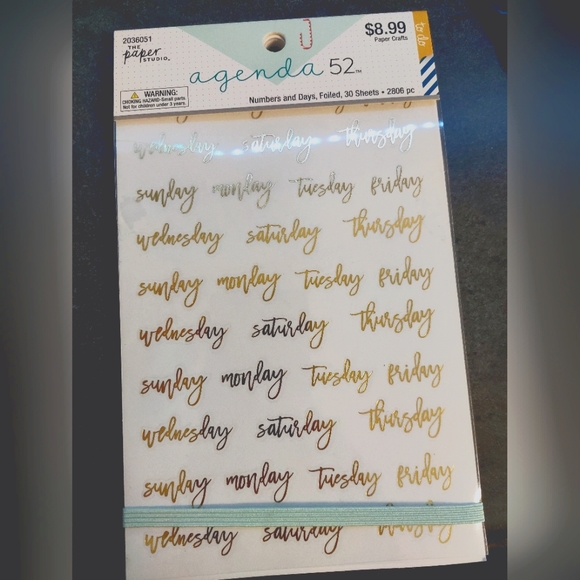 2036051
THE
paper
STUDIO.
$8.99
Paper Crafts
to do
agenda 52™
WARNING:
CHOKING HAZARD-Small parts.
Not for children under 3 years.
Numbers and Days, Foiled, 30 Sheets • 2806 pc
wednesday saturday thursday
sunday monday tuesday friday
wednesday saturday thursday
sunday monday tuesday friday
wednesday saturday thursday
sunday monday tuesday friday
wednesday saturday thursday
sunday monday tuesday friday
wednesday saturday thursday